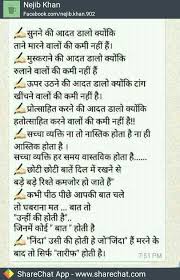 Nejib Khan
Facebook.com/nejib.khan.902
✍सुनने की आदत डालो क्योंकि
ताने मारने वालों की कमी नहीं हैं।
✍मुस्कराने की आदत डालो क्योंकि
रुलाने वालों की कमी नहीं हैं
✍ऊपर उठने की आदत डालो क्योंकि टांग
खींचने वालों की कमी नहीं है।
✍प्रोत्साहित करने की आदत डालो क्योंकि
हतोत्साहित करने वालों की कमी नहीं है!!
✍सच्चा व्यक्ति ना तो नास्तिक होता है ना ही
आस्तिक होता है ।
सच्चा व्यक्ति हर समय वास्तविक होता है......
✍छोटी छोटी बातें दिल में रखने से
बड़े बड़े रिश्ते कमजोर हो जाते हैं"
✍कभी पीठ पीछे आपकी बात चले
तो घबराना मत ... बात तो
"उन्हीं की होती है"..
जिनमें कोई " बात " होती है
✍"निंदा" उसी की होती है जो"जिंदा" हैं मरने के
बाद तो सिर्फ "तारीफ" होती है।
7:51 PM
ShareChat App - www.sharechat.com